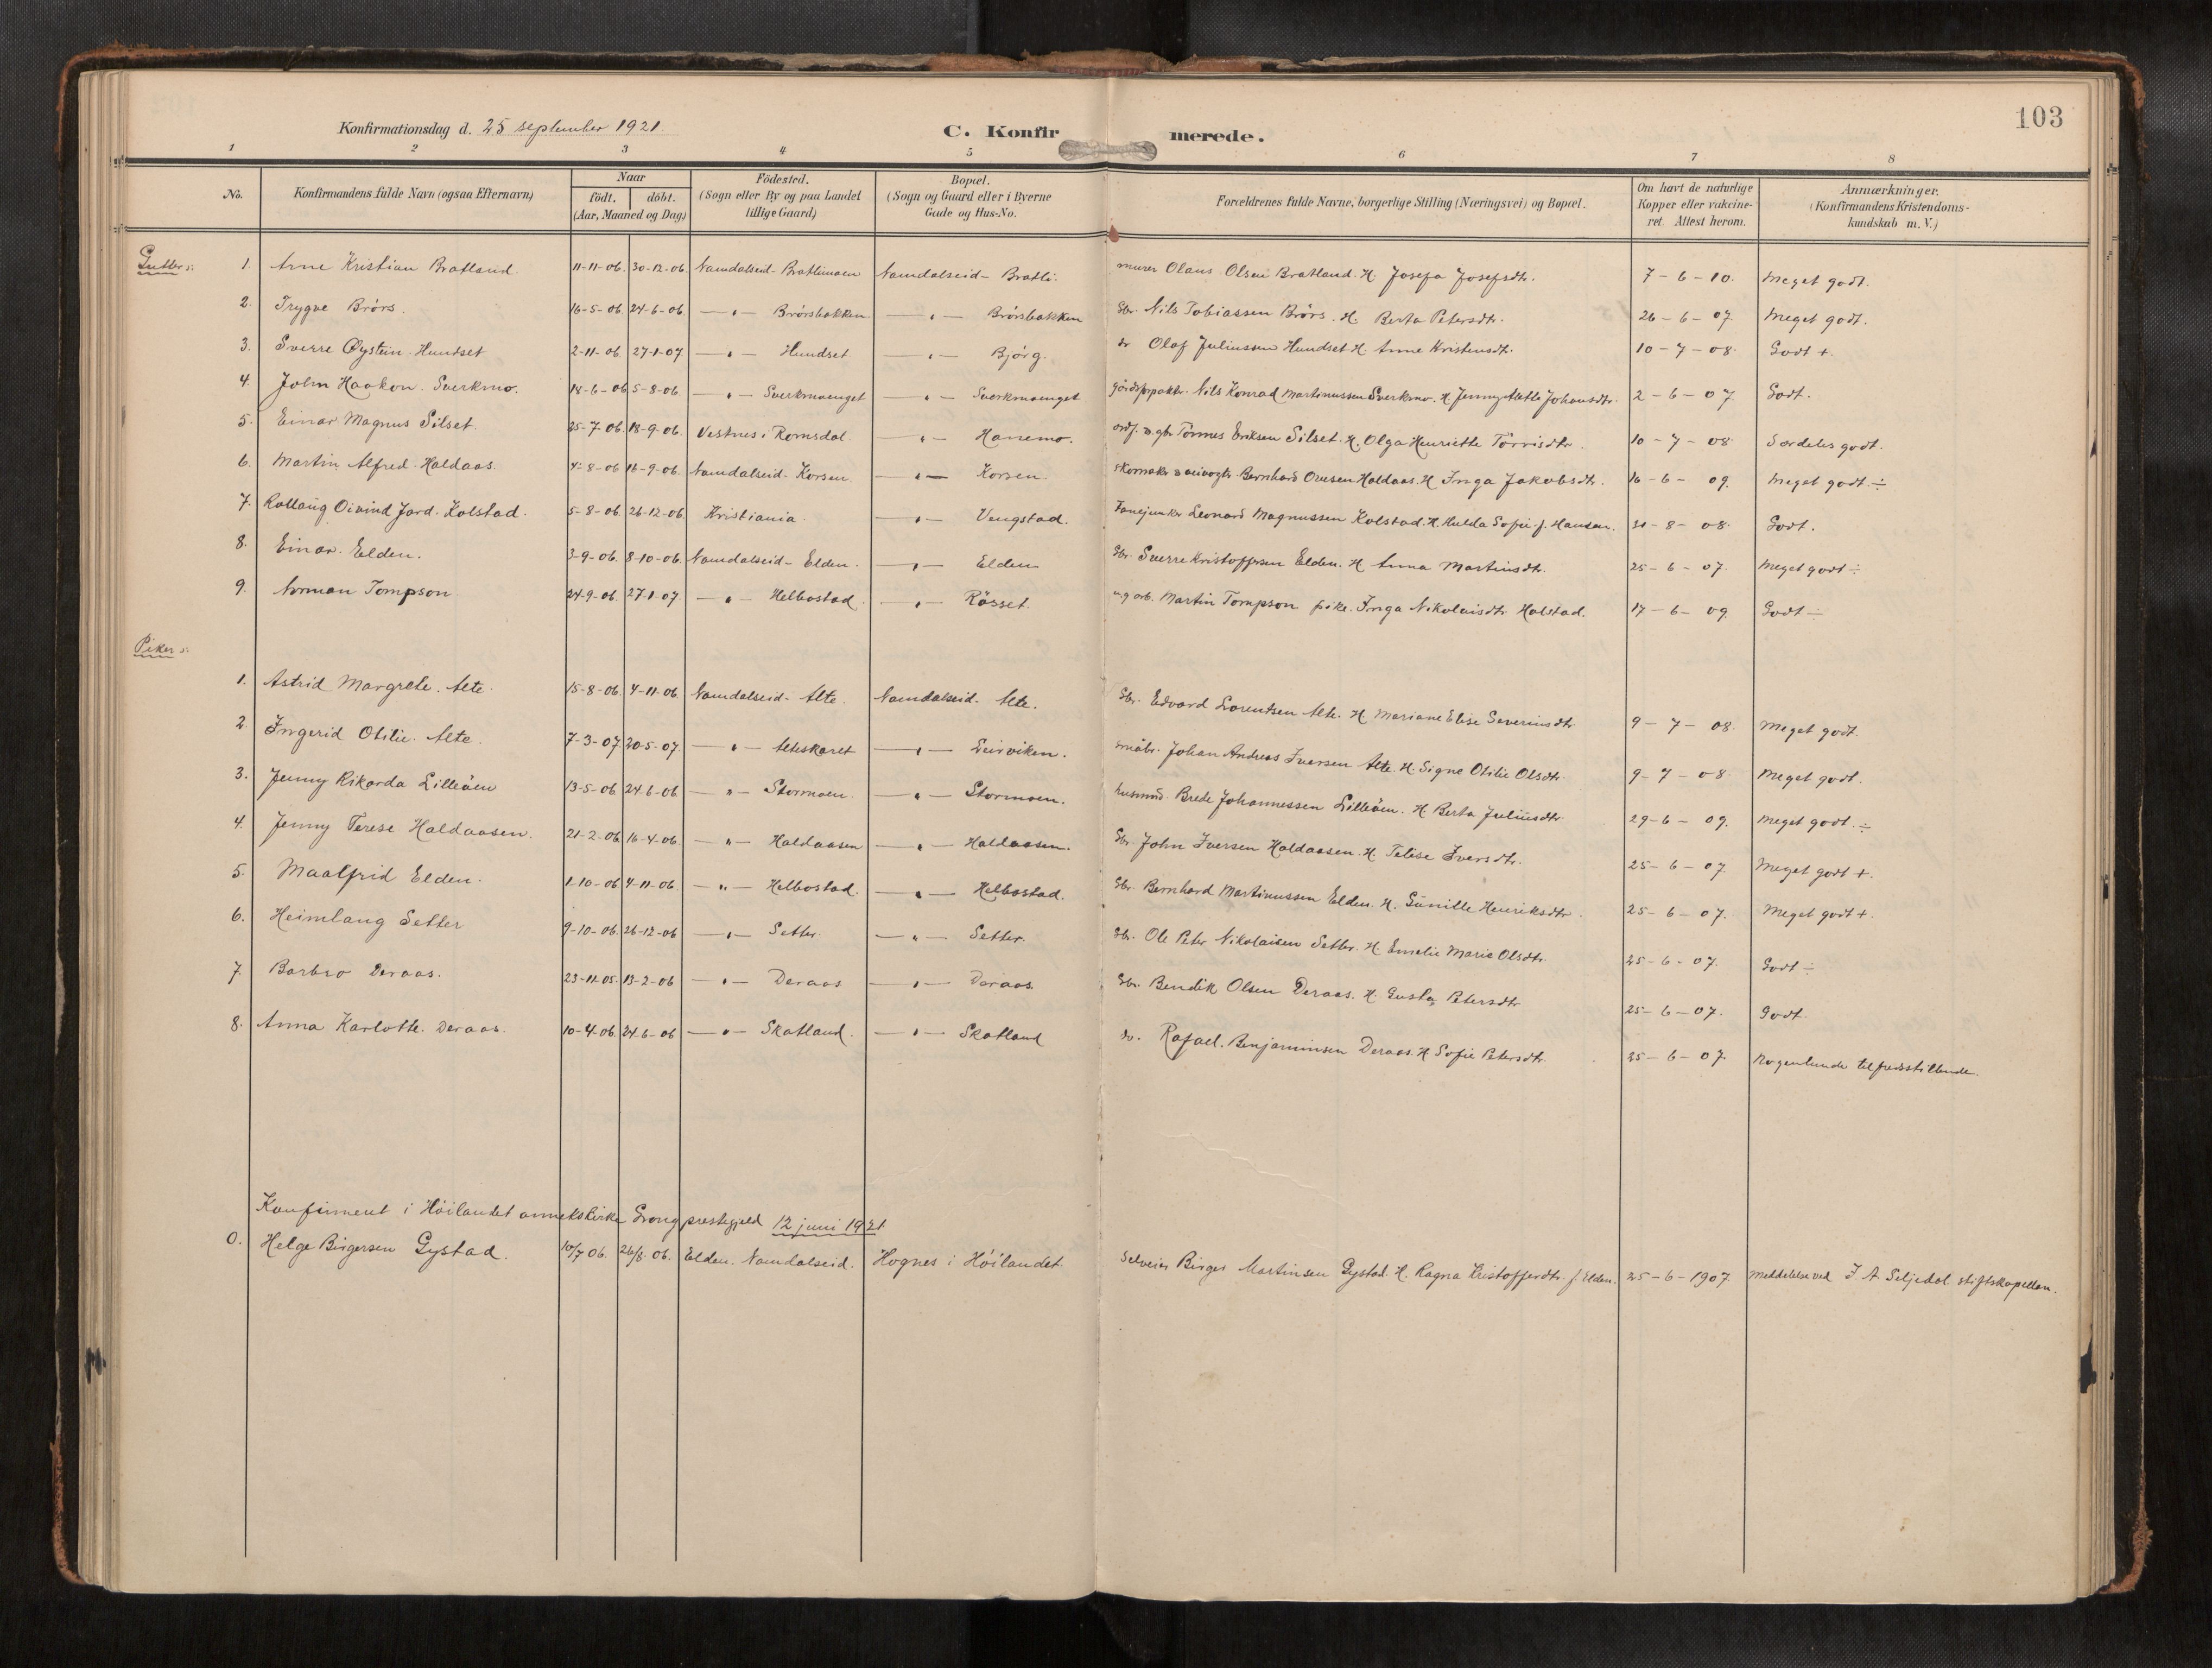 103
Konfirmationsdag d. 25 september 1921.
C. Konfirmerede.
1 2 3 4 5 6 7 8
No. Konfirmandens fulde Navn (ogsaa Efternavn) Naar födt. döbt. (Aar, Maaned og Dag) Födested. (Sogn eller By og paa Landet tillige Gaard) Bopæl. (Sogn og Gaard eller i Byerne Gade og Hus-No. Forældrenes fulde Navne, borgerlige Stilling (Næringsvei) og Bopæl. Om havt de naturlige Kopper eller vakcineret. Attest herom. Anmærkninger. (Konfirmandens Kristendomskundskab m. V.)
Gutter:
1. Arne Kristian Bratland. 11-11-06. 30-12-06. Namdalseid - Bratlimoen Namdalseid - Bratli. murer Olaus Olsen Bratland. H. Josefa Josefsdtr. 7-6-10. Meget godt.
2. Trygve Brörs. 16-5-06. 24-6-06. — " — Brörsbakken — " — Brörsbakken Gbr. Nils Tobiassen Brörs. H. Berta Petersdtr. 26-6-07. Meget godt.
3. Sverre Øystein Hundset 2-11-06. 27-1-07. — " — Hundset — " — Bjørg. Olaf Juliussen Hundset H. Anne Kristensdtr. 10-7-08. Godt +.
4. John Haakon Sverkmo. 18-6-06 5-8-06. — " — Sverkmoenget — " — Sverkmoenget Nils Konrad Martinussen Sverkmo. H. Jenny Johansdtr. 2-6-07 Godt.
5. Einar Magnus Silset. 25-7-06. 18-9-06. Vestnes i Romsdal. — " — Hanemo. Tönnes Eriksen Silset. H. Olga Henriette 10-7-08 Særdeles godt.
6. Martin Alfred Haldaas. 4-8-06 16-9-06. Namdalseid - Korsen. — " — Korsen. skomaker Bernhard Ovesen Haldaas. H. Inga Jakobsdtr. 16-6-09. Meget godt ÷
7. Oivind Jard. Kolstad. 5-8-06. 26-12-06. Kristiania. — " — Vengstad. Fanejunker Leonard Magnussen Kolstad. H. Hulda Sofie f. Hansen. 08. Godt.
8. Einar Elden. 3-9-06. 8-10-06. Namdalseid - Elden. — " — Elden Gbr. Sverre Kristoffersen Elden. H. Anna Martinsdtr. 25-6-07. Meget godt ÷
9. Norman Tompson 24-9-06. 27-1-07. — " — Helbostad. — " — Rösset. Martin Tompson pike. Inga Nikolaisdtr. Holstad. 17-6-09. Godt ÷
Piker:
1. Astrid Margrete Alte. 15-8-06. 4-11-06. Namdalseid - Alte. Namdalseid - Alte. Gbr. Edvard Lorentsen Alte. H. Mariane Elise Severinsdtr. 9-7-08. Meget godt.
2. Ingerid Otilie Alte. 7-3-07 20-5-07. — " — Alteskaret — " — Leirviken. småbr. Johan Andreas Iversen Alte. H. Signe Otilie Olsdtr. 9-7-08. Meget godt.
3. Jenny Rikarda Lilleöen 13-5-06. 24-6-06 — " — Stormoen. — " — Stormoen. husmd. Brede Johannessen Lilleöen. H. Berta Juliusdtr. 29-6-09. Meget godt ÷
4. Jenny Terese Haldaasen. 21-2-06. 16-4-06. — " — Haldaasen — " — Haldaasen. Gbr. John Iversen Haldaasen. H. Telise Iversdtr. 25-6-07. Meget godt +.
5. Maalfrid Elden. 1-10-06 4-11-06. — " — Helbostad. — " — Helbostad. Gbr. Bernhard Martinussen Elden. H. Günille Henriksdtr. 25-6-07. Meget godt +.
6. Heimlaug Setter 9-10-06. 26-12-06 — " — Setter. — " — Setter. Gbr. Ole Peter Nikolaisen Setter. H. Emelie Marie Olsdtr. 25-6-07. Godt ÷
7. Barbro Deraas. 23-11-05. 13-2-06 — " — Deraas — " — Deraas. Gbr. Bendik Olsen Deraas. H. Gusta Petersdtr. 25-6-07. Godt.
8. Anna Karlotte Deraas. 10-4-06. 24-6-06 — " — Skatland. — " — Skatland Rafael Benjaminsen Deraas. H. Sofie Petersdtr. 25-6-07. Nogenlunde tilfredsstillende.
Konfirment i Höilandet annekskirke Grong prestegjeld 12 juni 1921
0. Helge Birgersen Gystad. 10/7 06. 26/8 06. Elden. Namdalseid. Hognes i Höilandet Selveier Birger Martinsen Gystad. H. Ragna Kristofferdtr. f. Elden. 25-6-1907. Meddelelse ved J. A. Seljedal stiftskapellan.